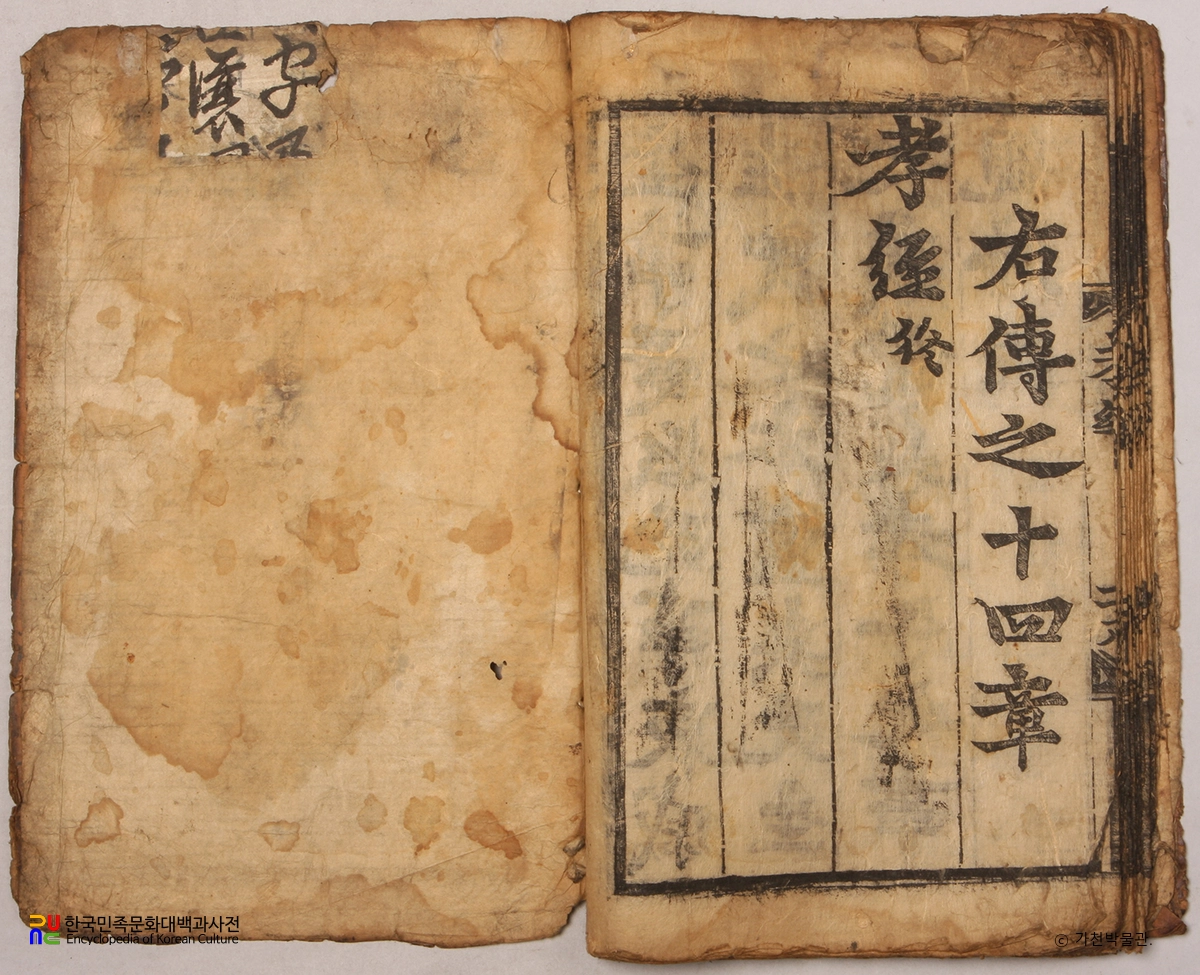 右傳之十四章
孝經終
한국민족문화대백과사전
Encyclopedia of Korean Culture
© 가천박물관.